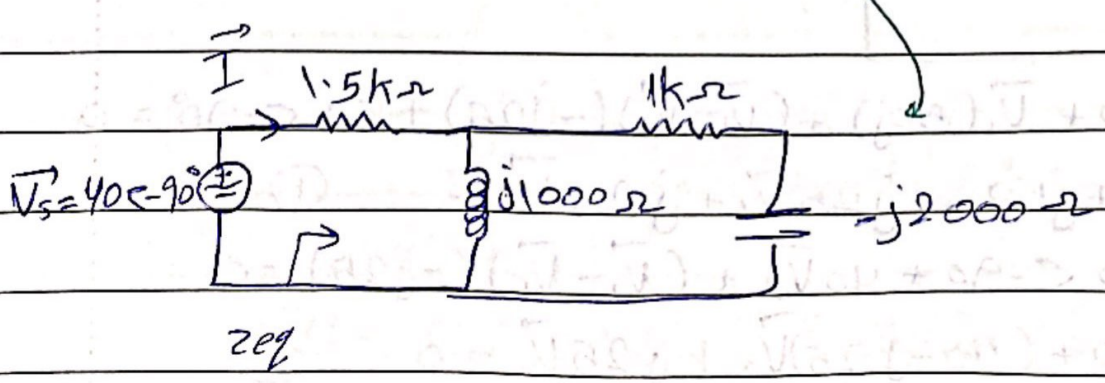 I
1.5kΩ
1kΩ
Vs=40<-90°
+
j1000Ω
-j2000Ω
zeq